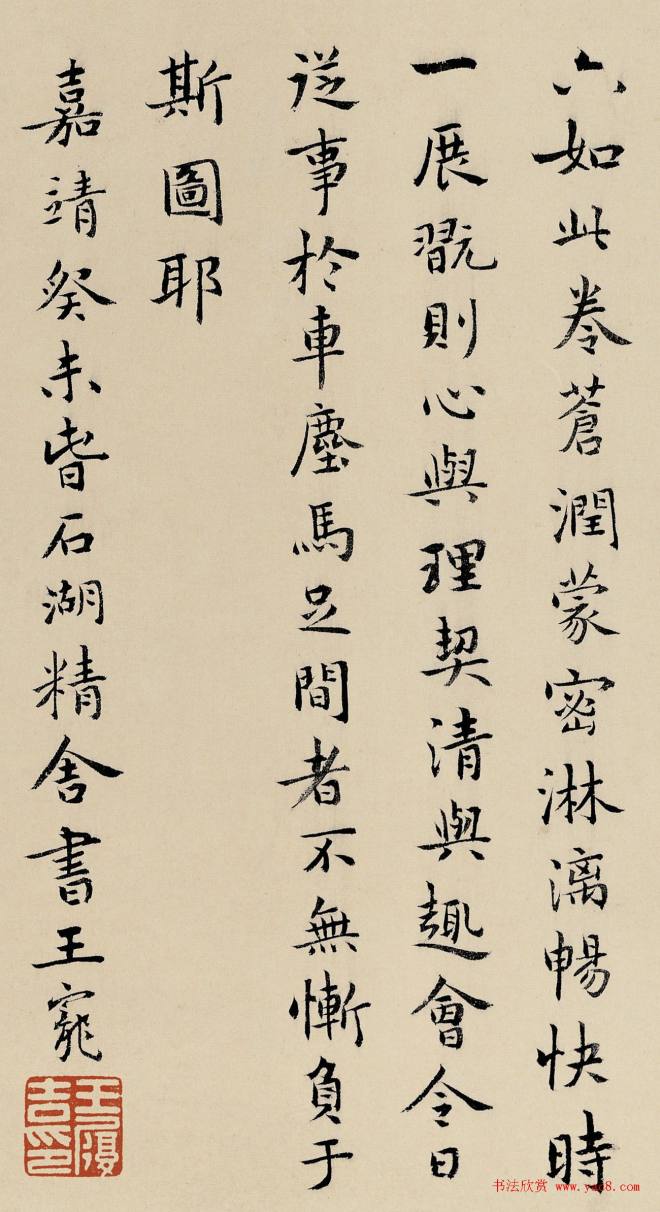 六如此卷蒼潤蒙密淋漓暢快時
一展翫則心與理契清與趣會令日
從事於車塵馬足間者不無慚負于
斯圖耶
嘉靖癸未春石湖精舍書王寵
王履吉印
书法欣赏 www.yac8.com